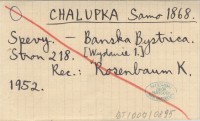 CHALUPKA Samo 1868.
Spevy. – Banska Bystrica.
Stron 218. [Wydanie 1.]
Rec.: Rosenbaum K.
1952.